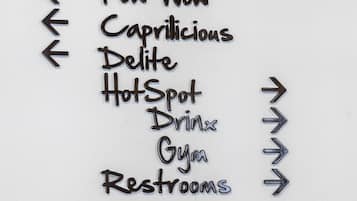 ← Caprilicious
Delite
HotSpot →
Drinx →
Gym →
Restrooms →